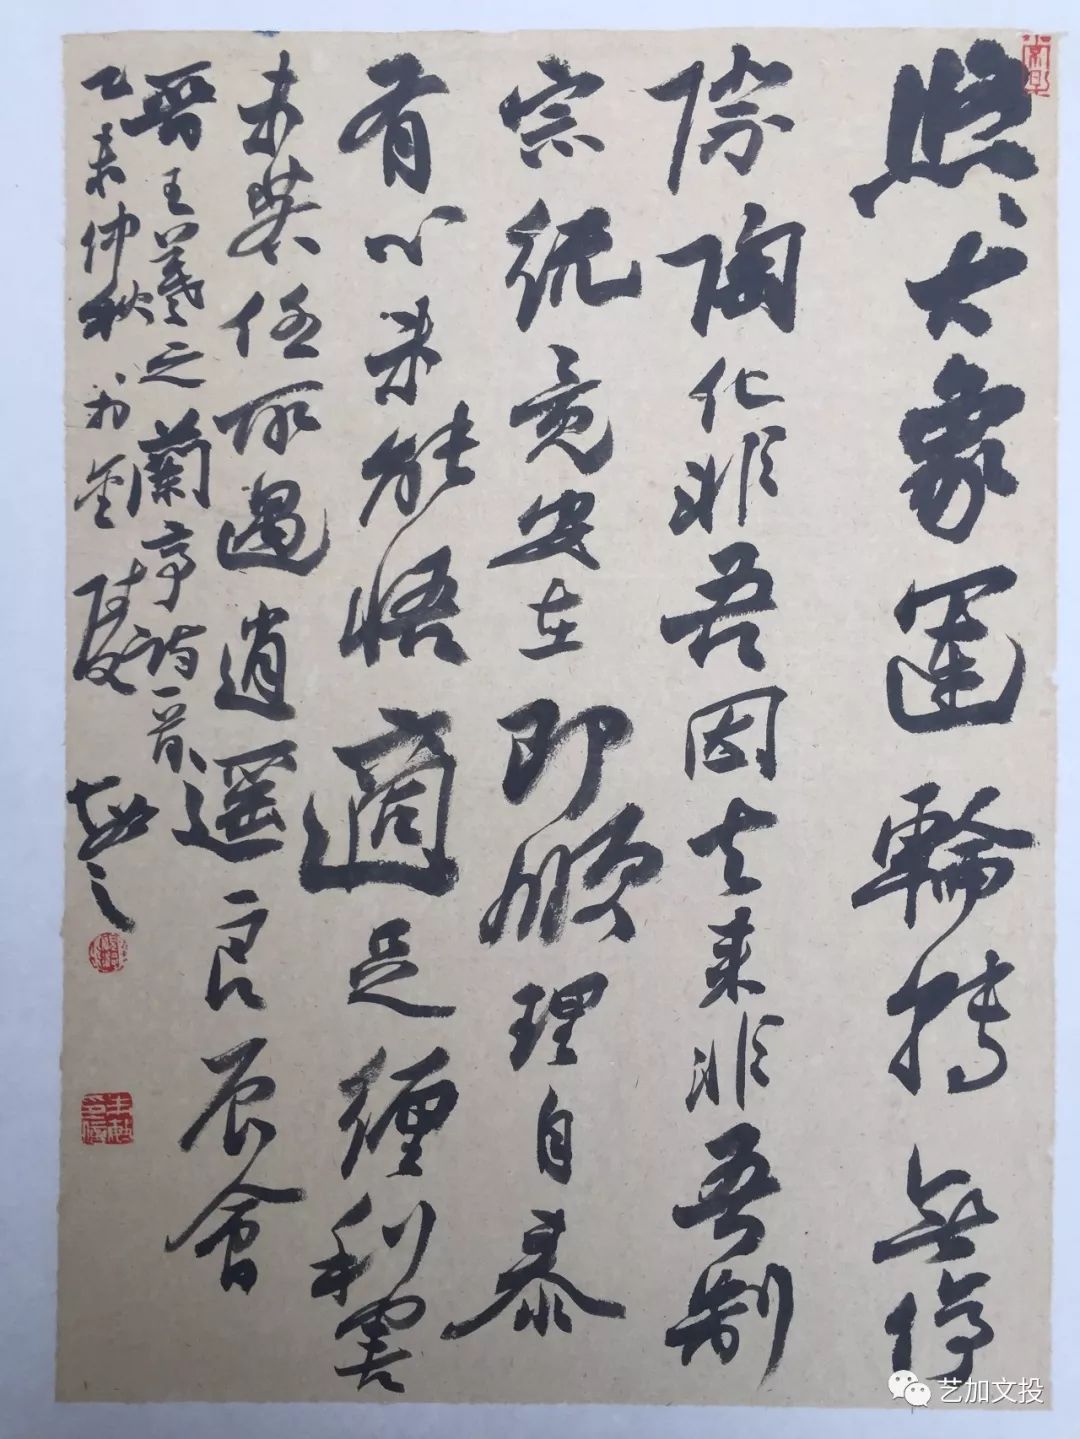 照大象運輪轉無停
際陶化非吾因去来非吾制
宗統竟安在即順理自泰
有心未能悟適足纏利害
未若任所遇逍遥良辰會
晋王羲之蘭亭詩一首
乙未仲秋於金陵
艺加文投